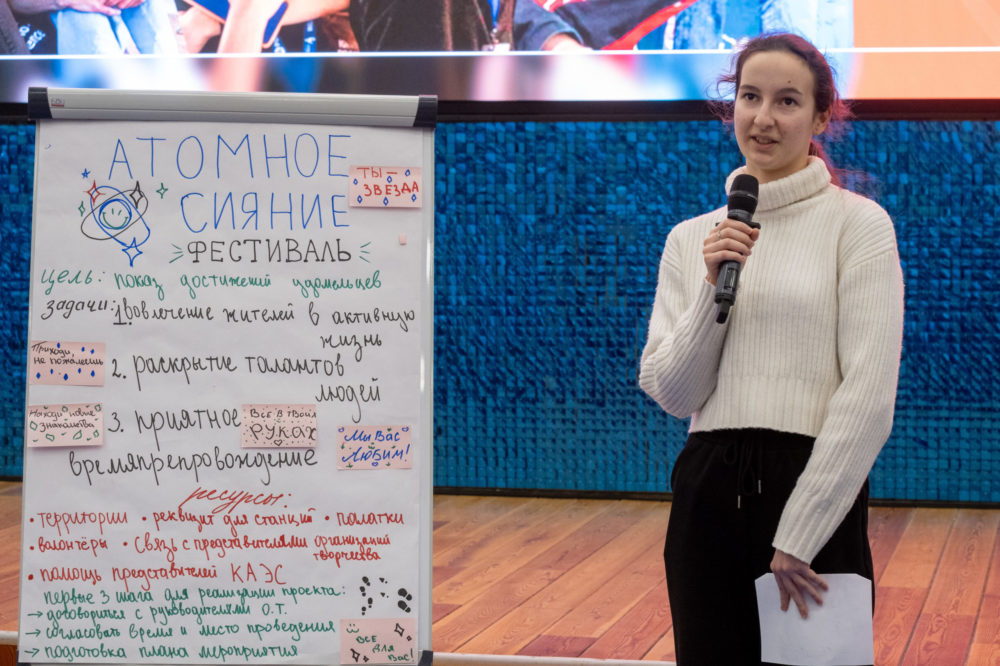 АТОМНОЕ
СИЯНИЕ
ФЕСТИВАЛЬ
ТЫ –
ЗВЕЗДА
цель: показ достижений удомельцев
задачи: 1. вовлечение жителей в активную
жизнь
2. раскрытие талантов
людей
3. приятное
времяпрепровождение
Приходи,
не пожалеешь
Находи новые
знакомства
Всё в твоих
РУКАХ
Мы Вас
Любим!
ресурсы:
• территории • реквизит для станций • палатки
• волонтёры • связь с представителями организаций
творчества
• помощь представителей КАЭС
первые 3 шага для реализации проекта:
→ договориться с руководителями О.Т.
→ согласовать время и место проведения
→ подготовка плана мероприятия
Все
для
Вас!